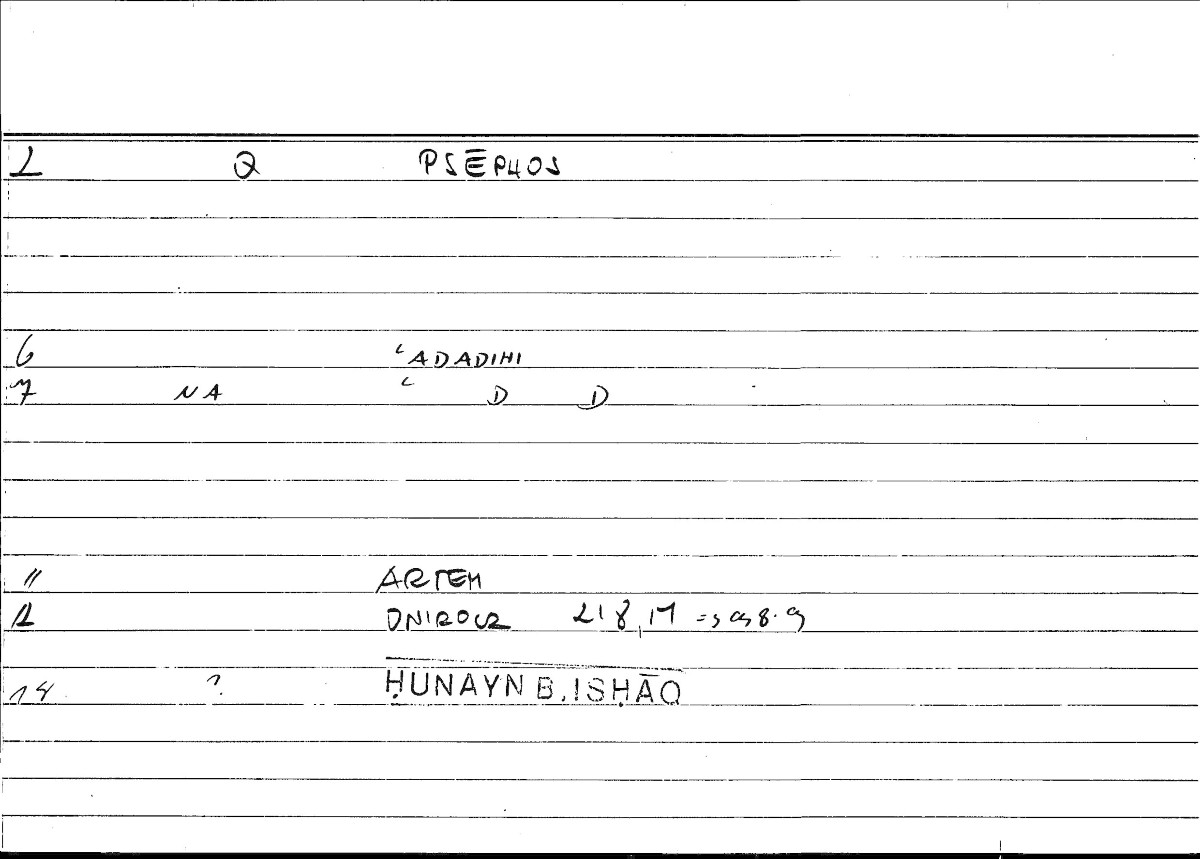 1 Q PSĒPHOS
6 ʿADADIHI
7 NA ʿ D D
11 ARTEM
12 ONIROCR 218,17
14 ? ḤUNAYN B. ISḤĀQ